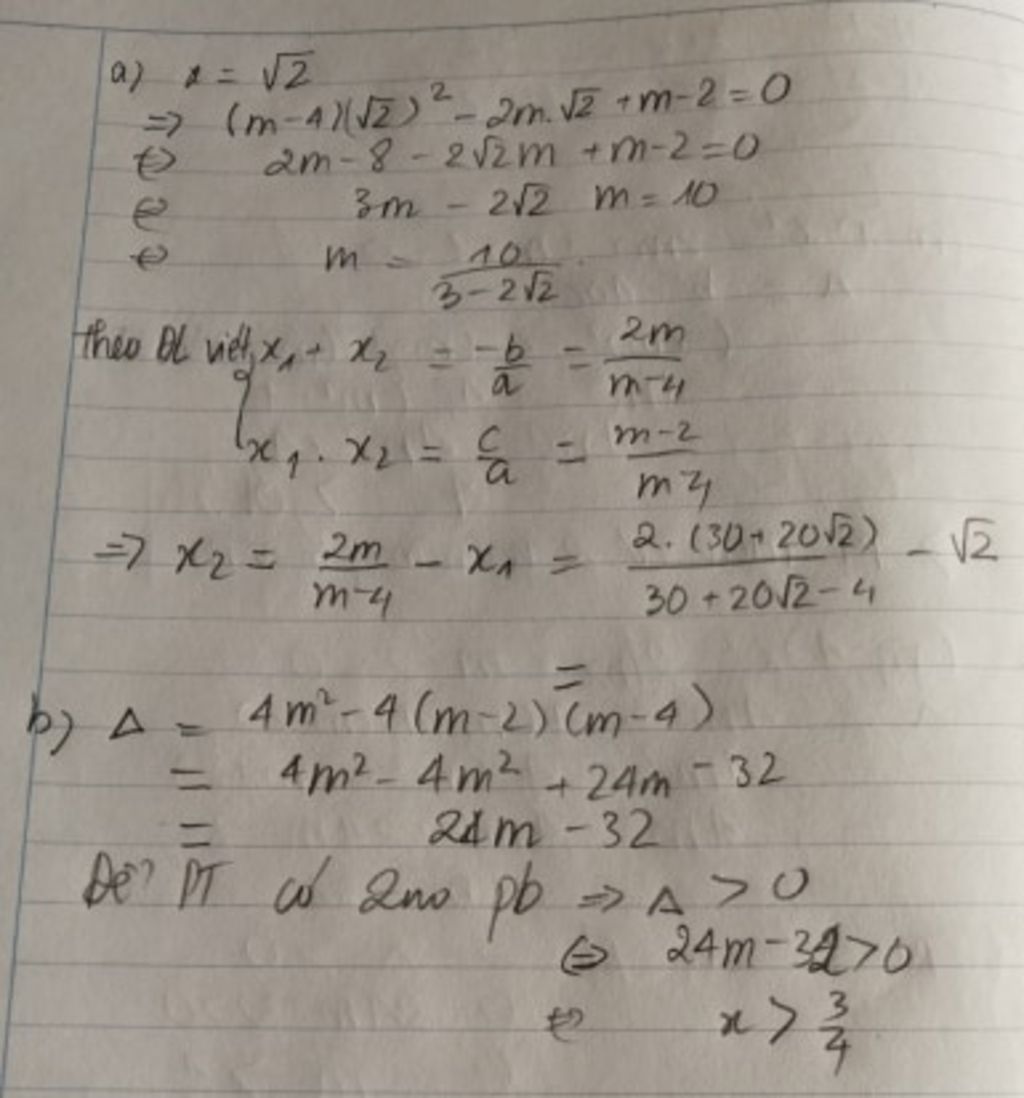 a) x = √2
=> (m-4)(√2)² - 2m.√2 + m-2 = 0
<=> 2m - 8 - 2√2m + m-2 = 0
<=> 3m - 2√2 m = 10
<=> m = 10/(3-2√2)
theo ĐL viét, x₁ + x₂ = -b/a = 2m/(m-4)
x₁ . x₂ = c/a = (m-2)/(m-4)
=> x₂ = 2m/(m-4) - x₁ = 2.(30+20√2)/(30+20√2-4) - √2
=
b) Δ = 4m² - 4(m-2)(m-4)
= 4m² - 4m² + 24m - 32
= 24m - 32
Để PT có 2no pb => Δ > 0
<=> 24m - 32 > 0
<=> x > 3/4